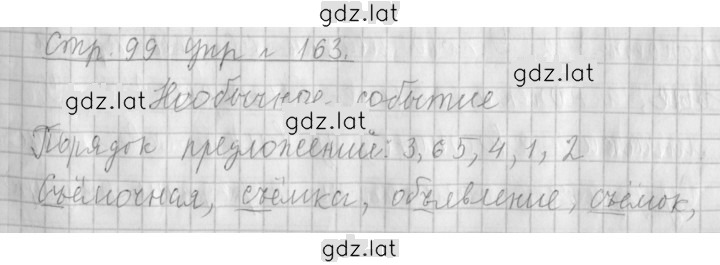 gdz.lat
Стр 99 упр № 163.
gdz.lat
gdz.lat Необычное событие
gdz.lat
Порядок предложений: 3, 6 5, 4, 1, 2
Съёмочная, съёмка, объявление, съёмок,
gdz.lat